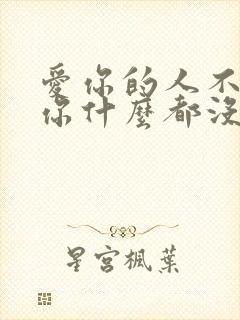 愛你的人不
你什麼都沒
星宮楓葉